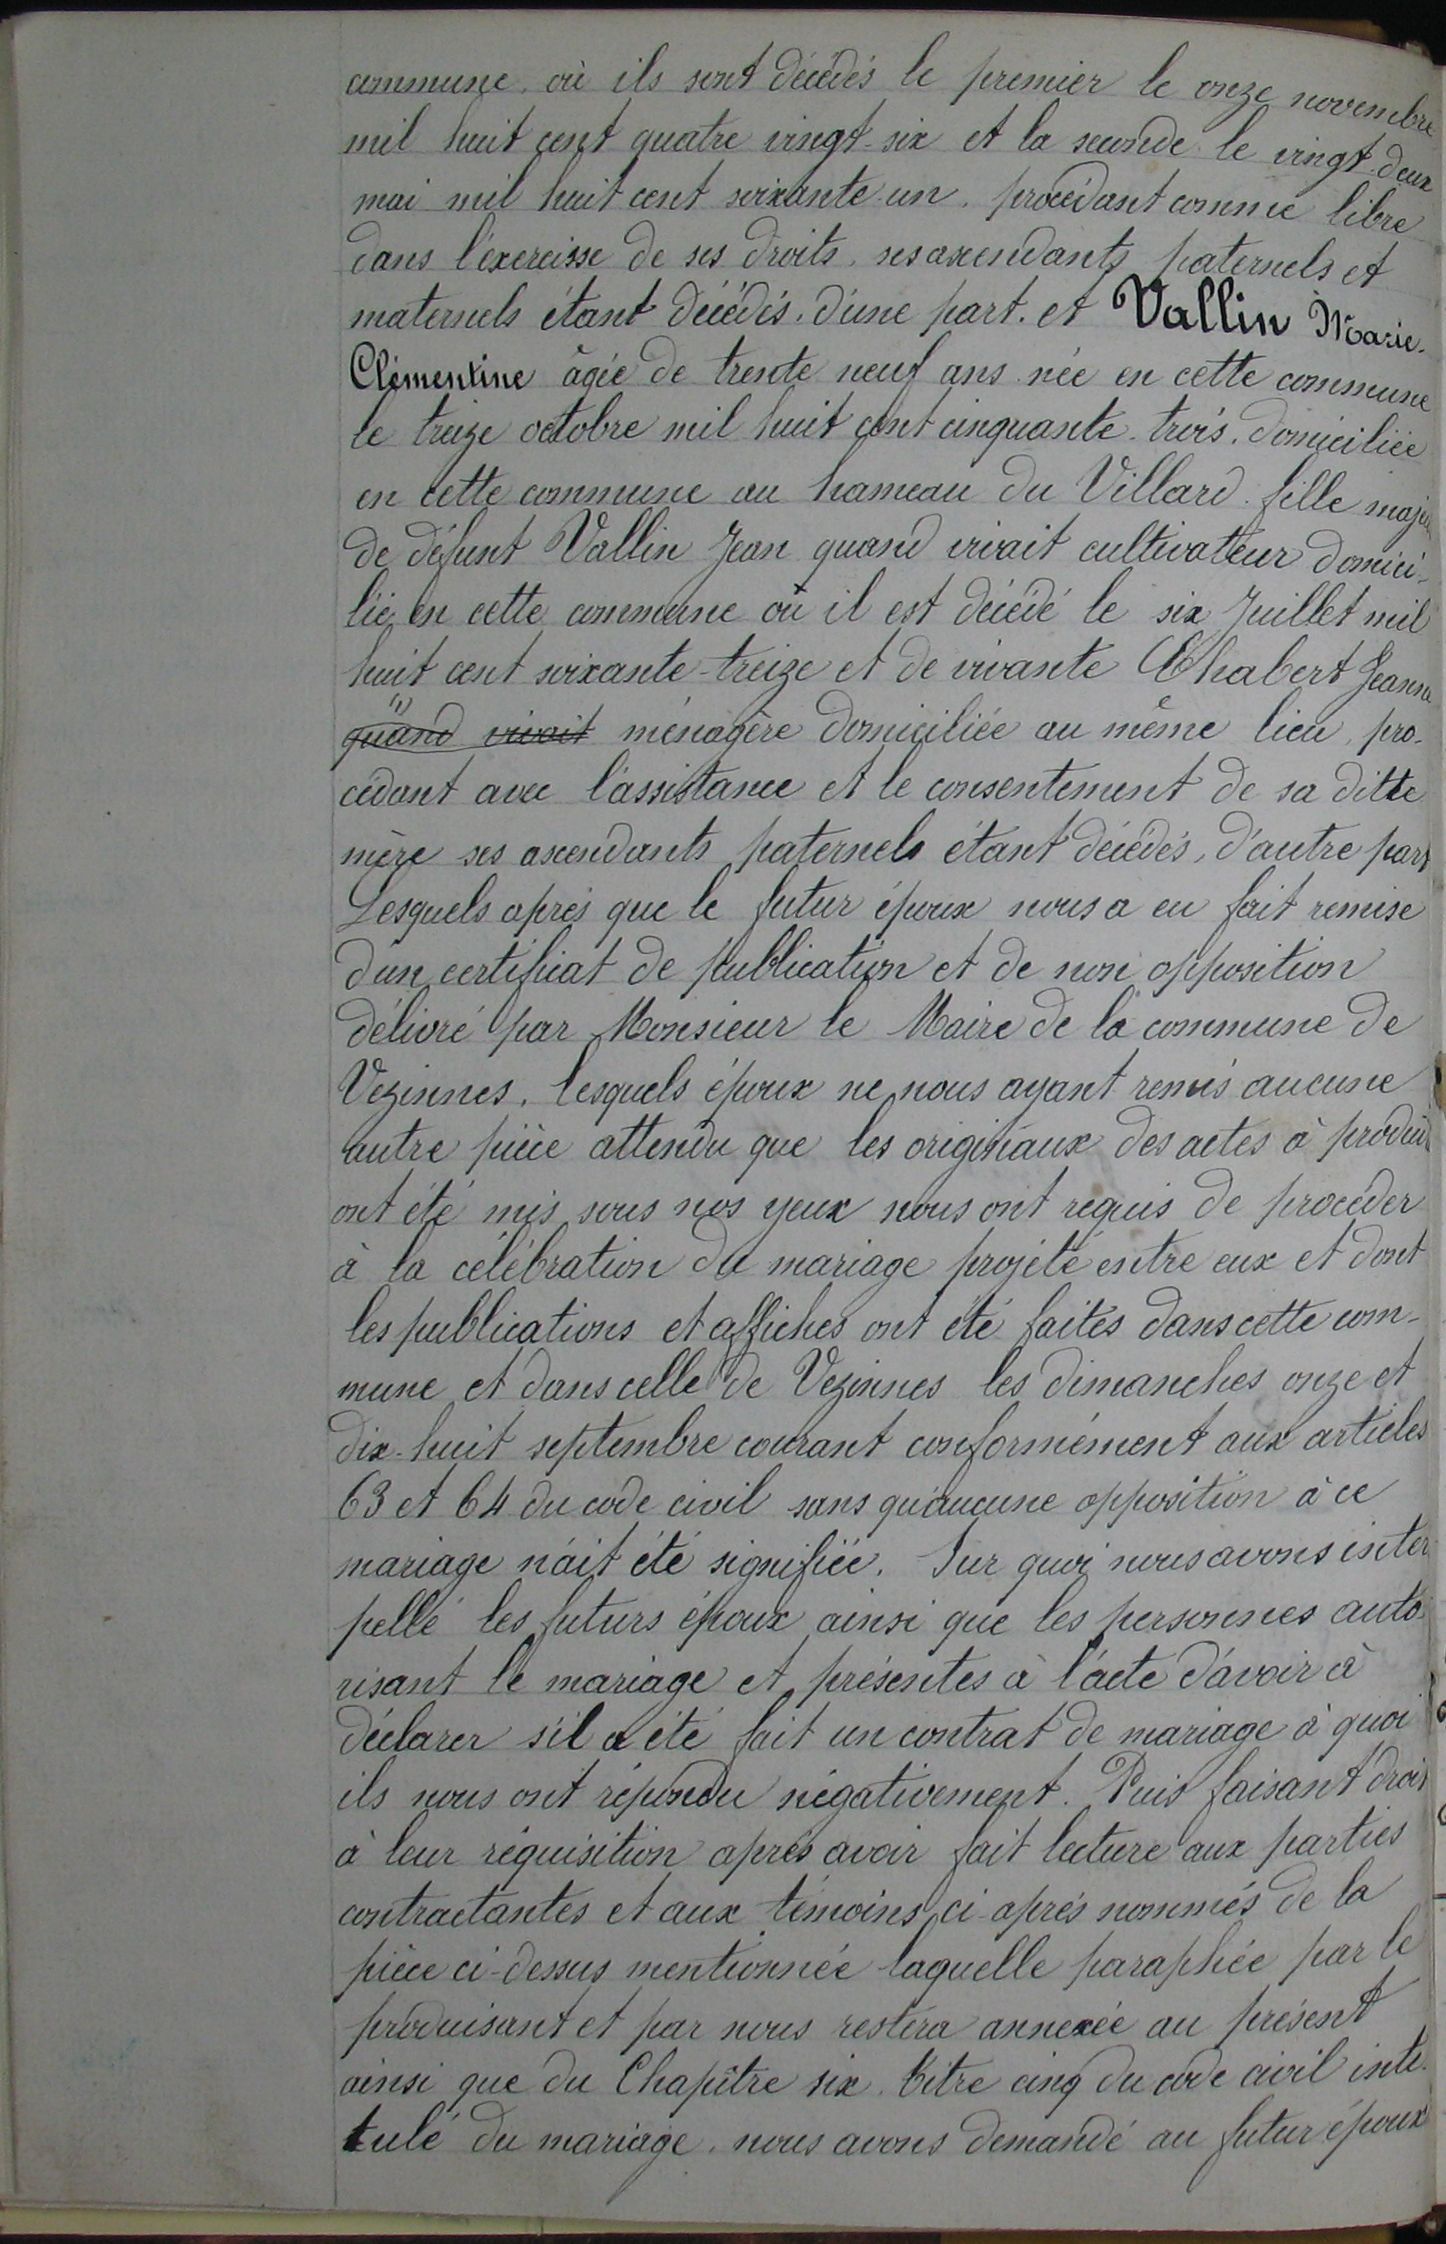 commune, où ils sont décédés le premier le onze novembre
mil huit cent quatre vingt-six et la seconde le vingt-deux
mai mil huit cent soixante-un, procédant comme libre
dans l'exercisse de ses droits, ses ascendants paternels et
maternels étant décédés, d'une part. et Vallin Marie-
Clémentine âgée de trente neuf ans née en cette commune
le treize octobre mil huit cent cinquante-trois, domiciliée
en cette commune au hameau du Villard fille maje
de défunt Vallin Jean quand vivait cultivateur domici-
lié en cette commune où il est décédé le six Juillet mil
huit cent soixante-treize et de vivante Chabert Jeanne
quand vivait ménagère domiciliée au même lieu, pro-
cédant avec l'assistance et le consentement de sa ditte
mère ses ascendants paternels étant décédés, d'autre part
Lesquels après que le futur époux nous a eu fait remise
d'un certificat de publication et de non opposition
délivré par Monsieur le Maire de la commune de
Vezinnes, lesquels époux ne nous ayant remis aucune
autre pièce attendu que les originaux des actes à produi
ont été mis sous nos yeux nous ont requis de procéder
à la célébration du mariage projeté entre eux et dont
les publications et affiches ont été faites dans cette com-
mune et dans celle de Vezinnes les dimanches onze et
dix-huit septembre courant conformément aux articles
63 et 64 du code civil sans qu'aucune opposition à ce
mariage n'ait été signifiée. Sur quoi nous avons inter
pellé les futurs époux ainsi que les personnes auto-
risant le mariage et présentes à l'acte d'avoir à
déclarer s'il a été fait un contrat de mariage à quoi
ils nous ont répondu négativement. Puis faisant droit
à leur réquisition après avoir fait lecture aux parties
contractantes et aux témoins ci-après nommés de la
pièce ci-dessus mentionnée laquelle paraphée par le
produisant et par nous restera annexée au présent
ainsi que du Chapître six, titre cinq du code civil inti-
tulé du mariage, nous avons demandé au futur époux